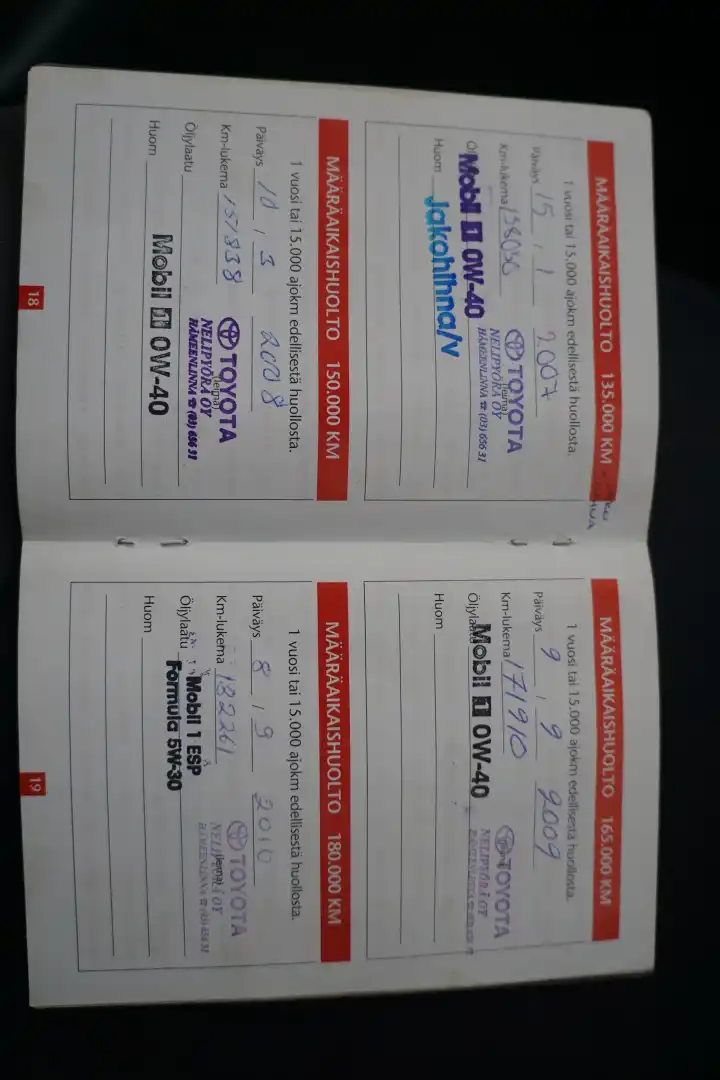 MÄÄRÄAIKAISHUOLTO 135.000 KM
1 vuosi tai 15.000 ajokm edellisestä huollosta.
Päiväys 15 1 2007
Km-lukema
TOYOTA
(leima)
NELIPYÖRÄ OY
HÄMEENLINNA ☎ (03) 656 31
Mobil 1 0W-40
Huom Jakohihna/v
MÄÄRÄAIKAISHUOLTO 150.000 KM
1 vuosi tai 15.000 ajokm edellisestä huollosta.
Päiväys 10 3 2008
Km-lukema 151838
TOYOTA
(leima)
NELIPYÖRÄ OY
HÄMEENLINNA ☎ (03) 656 31
Öljylaatu
Mobil 1 0W-40
Huom
18
MÄÄRÄAIKAISHUOLTO 165.000 KM
1 vuosi tai 15.000 ajokm edellisestä huollosta.
Päiväys 9 9 2009
Km-lukema 171910
TOYOTA
NELIPYÖRÄ OY
Öljylaatu Mobil 1 0W-40
Huom
MÄÄRÄAIKAISHUOLTO 180.000 KM
1 vuosi tai 15.000 ajokm edellisestä huollosta.
Päiväys 8 9 2010
Km-lukema 182261
TOYOTA
(leima)
NELIPYÖRÄ OY
HÄMEENLINNA ☎ (03) 656 31
Öljylaatu Mobil 1 ESP
Formula 5W-30
Huom
19